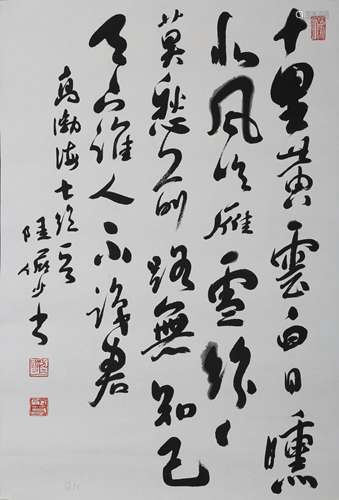 十里黄雲白日曛
北風吹雁雪紛々
莫愁前路無知己
天下誰人不識君
高渤海七絕一首
陸儼少書